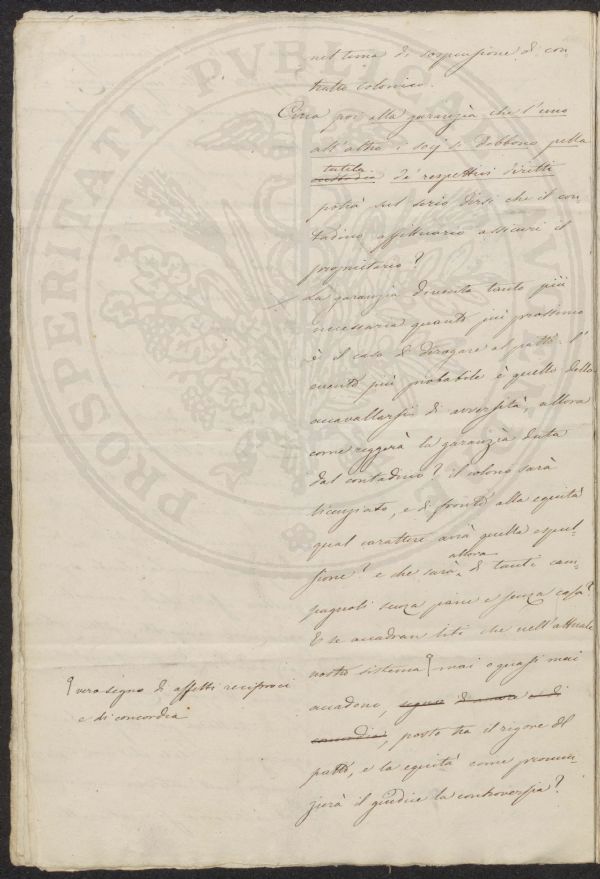 nel tema di sospensione di con
tratto colonico.
Circa poi alla garanzia che l'uno
all'altro i socj si debbono pella
tutela
custodia de' respettivi diritti
potrà sul serio dirsi che il con
tadino affittuario assicuri il
proprietario?
La garanzia diventa tanto più
necessaria quanto più prossimo
è il caso di derogare al patto. L'
evento più probabile è quello dello
accavallarsi di avversità, allora
come reggerà la garanzia data
dal contadino? il colono sarà
licenziato, e di fronte alla equità
qual carattere avrà quella espul-
sione? e che sarà allora di tanti cam-
pagnoli senza pane e senza casa?
E se accadran liti che nell'attuale
nostro sistema mai o quasi mai
vero segno di affetti reciproci
e di concordia
accadono, segno di amore e di
concordia, posto tra il rigore del
patto, e la equità come pronun-
zierà il giudice la controversia?
PROSPERITATI PUBLICAE AUGENDAE